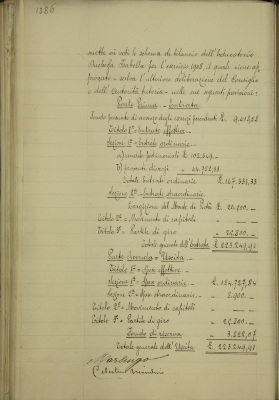 1386
mette ai voti lo schema di bilancio dell'
Isabella per l'esercizio 1908 il quale viene ap
provato - salva l'ulteriore deliberazione del Consiglio
e dell'autorità tutoria - nelle sue seguenti previsioni:
Parte Prima - Entrata
Fondo presunto di avanzo degli esercizi precedenti £.
Titolo 1° - Entrate effettive
Sezione 1ª - Entrate ordinarie
a) rendite patrimoniali £.
b) proventi diversi "
Totale entrate ordinarie £. 167.331,33
Sezione 2ª - Entrate straordinarie
del Monte di Pietà £. 20.500.-
Titolo 2° - Movimento di capitali " -
Titolo 3° - Partite di giro " 25.800.-
Totale generale dell'Entrata £. 223.240,91
Parte Seconda - Uscita
Titolo 1° - Spese effettive
Sezione 1ª - Spese ordinarie £.
Sezione 2ª - Spese straordinarie " 2.900.-
Titolo 2° - Movimento di capitali " -
Titolo 3° - Partite di giro " 25.800.-
Fondo di riserva "
Totale generale dell'Uscita £. 223.240,91